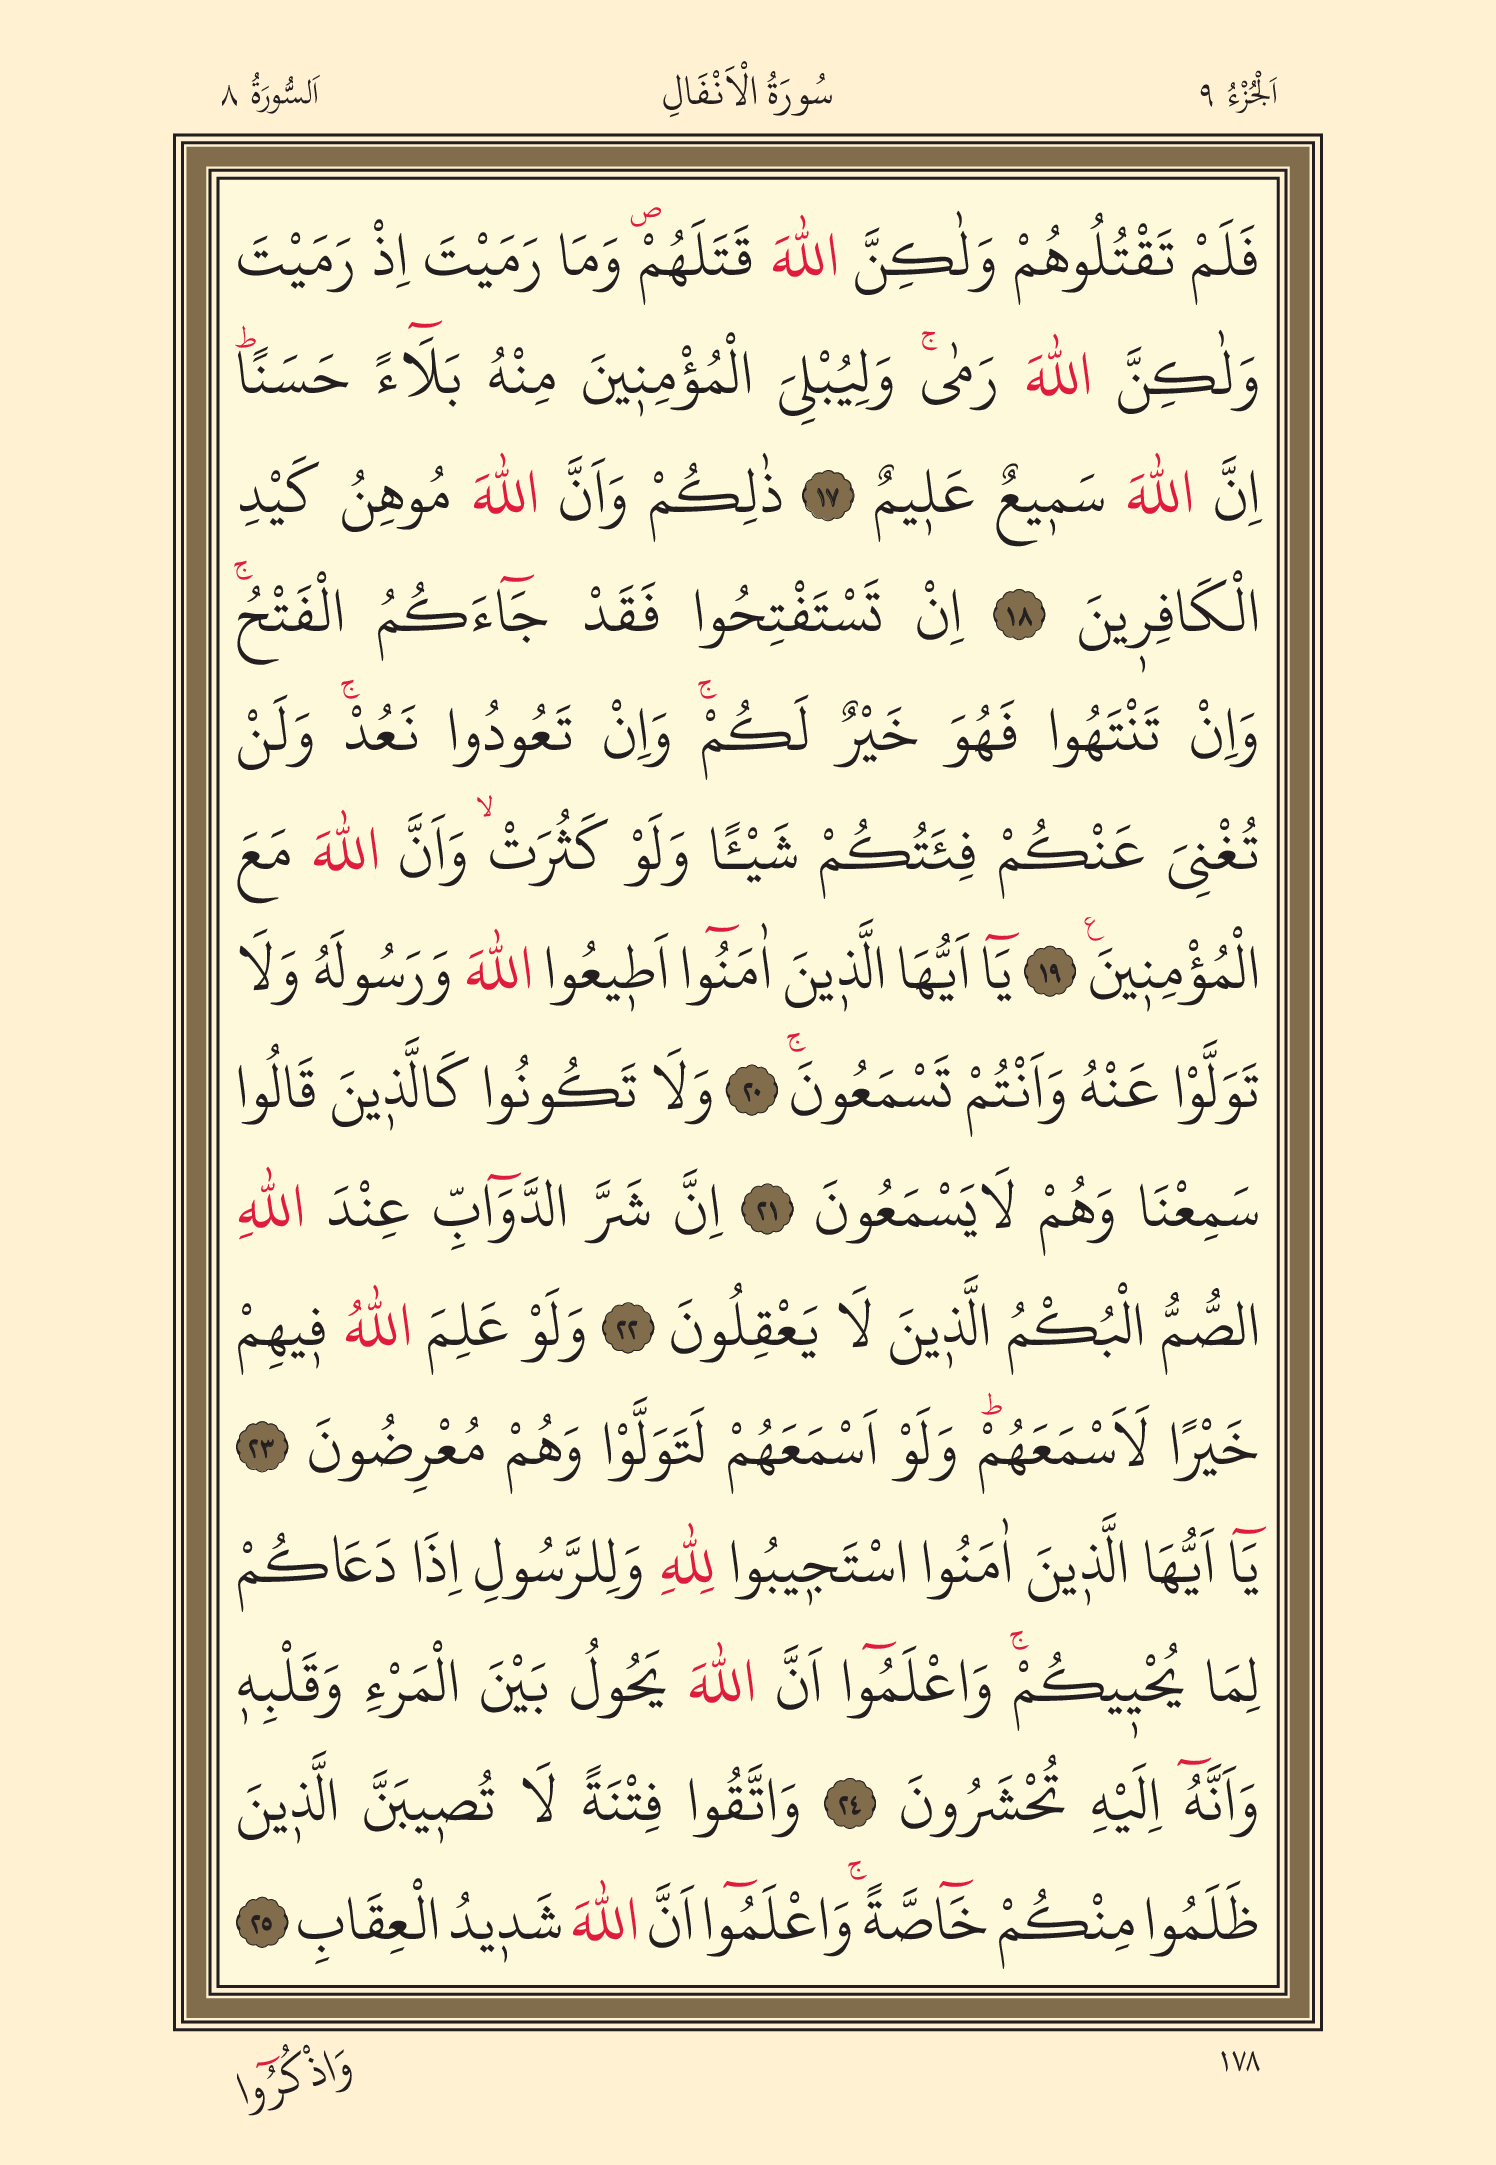 اَلْجُزْءُ ٩ سُورَةُ الْاَنْفَالِ اَلسُّورَةُ ٨
فَلَمْ تَقْتُلُوهُمْ وَلٰكِنَّ اللّٰهَ قَتَلَهُمْۖ وَمَا رَمَيْتَ اِذْ رَمَيْتَ
وَلٰكِنَّ اللّٰهَ رَمٰىۚ وَلِيُبْلِيَ الْمُؤْمِنٖينَ مِنْهُ بَلَٓاءً حَسَنًاؕ
اِنَّ اللّٰهَ سَمٖيعٌ عَلٖيمٌ ﴿١٧﴾ ذٰلِكُمْ وَاَنَّ اللّٰهَ مُوهِنُ كَيْدِ
الْكَافِرٖينَ ﴿١٨﴾ اِنْ تَسْتَفْتِحُوا فَقَدْ جَٓاءَكُمُ الْفَتْحُۚ
وَاِنْ تَنْتَهُوا فَهُوَ خَيْرٌ لَكُمْۚ وَاِنْ تَعُودُوا نَعُدْۚ وَلَنْ
تُغْنِيَ عَنْكُمْ فِئَتُكُمْ شَيْـًٔا وَلَوْ كَثُرَتْۙ وَاَنَّ اللّٰهَ مَعَ
الْمُؤْمِنٖينَࣖ ﴿١٩﴾ يَٓا اَيُّهَا الَّذٖينَ اٰمَنُٓوا اَطٖيعُوا اللّٰهَ وَرَسُولَهُ وَلَا
تَوَلَّوْا عَنْهُ وَاَنْتُمْ تَسْمَعُونَۚ ﴿٢٠﴾ وَلَا تَكُونُوا كَالَّذٖينَ قَالُوا
سَمِعْنَا وَهُمْ لَايَسْمَعُونَ ﴿٢١﴾ اِنَّ شَرَّ الدَّوَٓابِّ عِنْدَ اللّٰهِ
الصُّمُّ الْبُكْمُ الَّذٖينَ لَا يَعْقِلُونَ ﴿٢٢﴾ وَلَوْ عَلِمَ اللّٰهُ فٖيهِمْ
خَيْرًا لَاَسْمَعَهُمْؕ وَلَوْ اَسْمَعَهُمْ لَتَوَلَّوْا وَهُمْ مُعْرِضُونَ ﴿٢٣﴾
يَٓا اَيُّهَا الَّذٖينَ اٰمَنُوا اسْتَجٖيبُوا لِلّٰهِ وَلِلرَّسُولِ اِذَا دَعَاكُمْ
لِمَا يُحْيٖيكُمْۚ وَاعْلَمُٓوا اَنَّ اللّٰهَ يَحُولُ بَيْنَ الْمَرْءِ وَقَلْبِهٖ
وَاَنَّهُٓ اِلَيْهِ تُحْشَرُونَ ﴿٢٤﴾ وَاتَّقُوا فِتْنَةً لَا تُصٖيبَنَّ الَّذٖينَ
ظَلَمُوا مِنْكُمْ خَٓاصَّةًۚ وَاعْلَمُٓوا اَنَّ اللّٰهَ شَدٖيدُ الْعِقَابِ ﴿٢٥﴾
١٧٨ وَاذْكُرُٓوا